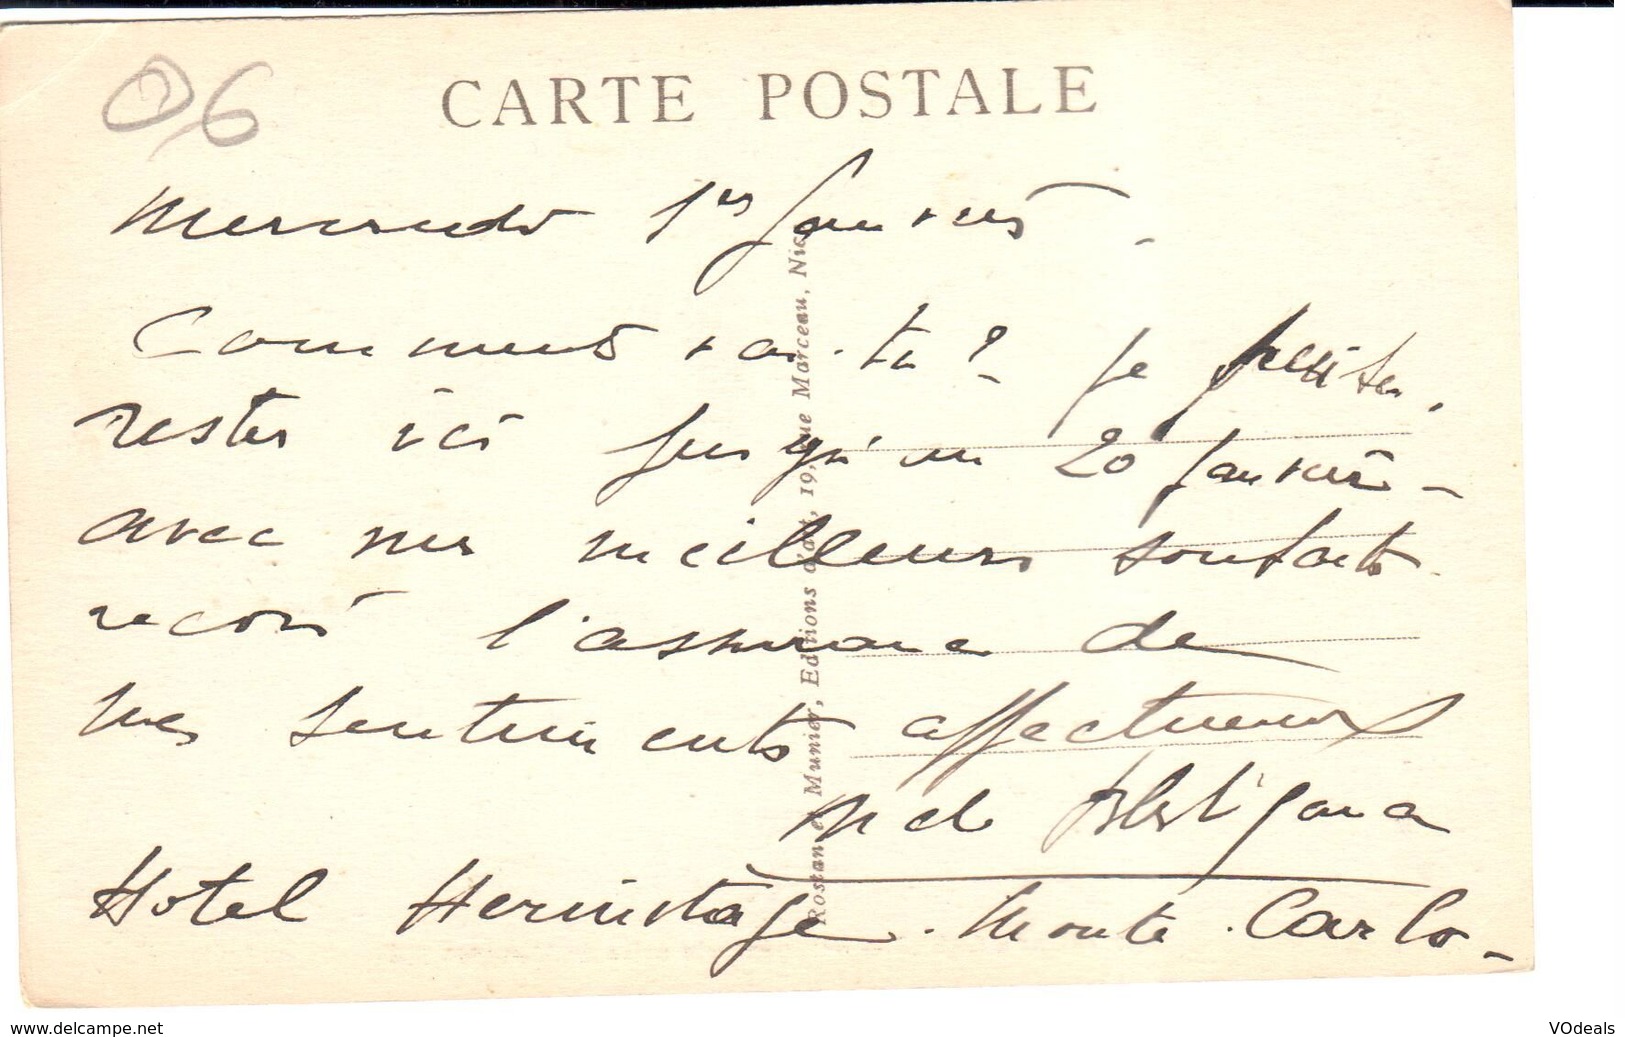 06
CARTE POSTALE
Mercredi 1er Janvier
Comment vas-tu? Je pense
rester ici jusqu'au 20 Janvier -
avec mes meilleurs souhaits
recois l'assurance de
mes sentiments affectueux
Hotel Hermitage. Monte-Carlo -
Rostan et Munier, Editions d'art, 19, rue Marceau, Nice
www.delcampe.net
VOdeals